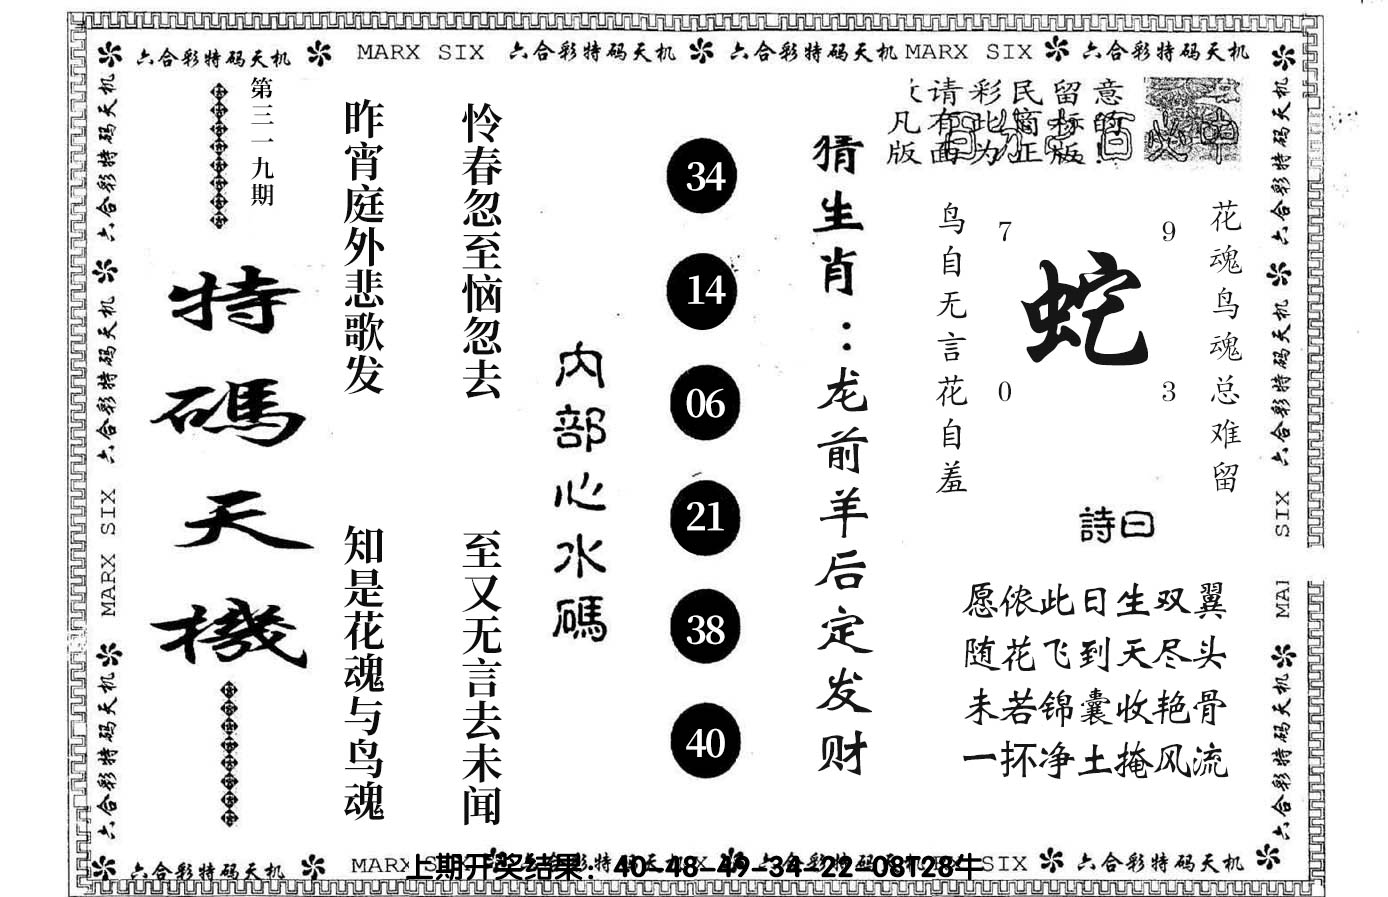 六合彩特码天机 MARX SIX 六合彩特码天机 六合彩特码天机 MARX SIX 六合彩特码天机
第三一九期
特碼天機
昨宵庭外悲歌发 知是花魂与鸟魂
怜春忽至恼忽去 至又无言去未闻
内部心水碼
34
14
06
21
38
40
猜生肖：龙前羊后定发财
请彩民留意
凡有此商标的
版面为正版!
鸟自无言花自羞
7 9
蛇
0 3
花魂鸟魂总难留
詩曰
愿侬此日生双翼
随花飞到天尽头
未若锦囊收艳骨
一抔净土掩风流
六合彩特码天机 MARX SIX 六合彩特码天机 六合彩特码天机
六合彩特码天机 六合彩特码天机 SIX MA 六合彩特码天机
六合彩特码天机 MARX SIX SIX 六合彩特码天机
上期开奖结果：40-48-49-34-22-08T28牛